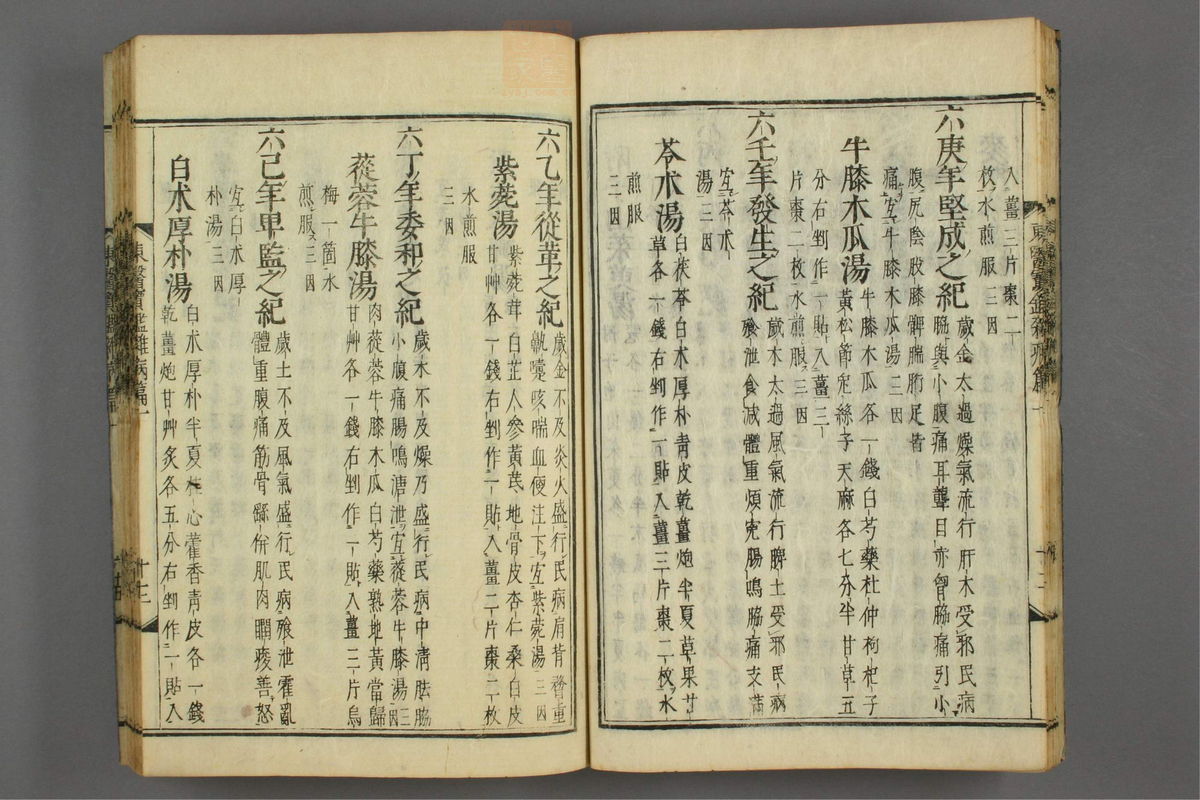 入薑三片棗二
枚水煎服三因
六庚年堅成之紀
歲金太過燥氣流行肝木受邪民病
脇與小腹痛耳聾目赤胷脇痛引小
腹尻陰股膝髀腨胻足皆
痛宜牛膝木瓜湯三因
牛膝木瓜湯
牛膝木瓜各一錢白芍藥杜仲枸杞子
黃松節兔絲子天麻各七分半甘草五
分右剉作一貼入薑三
片棗二枚水煎服三因
六壬年發生之紀
歲木太過風氣流行脾土受邪民病
飱泄食減體重煩寃腸鳴脇痛支滿
宜苓朮
湯三因
苓朮湯
白茯苓白朮厚朴靑皮乾薑炮半夏草果甘
草各一錢右剉作一貼入薑三片棗二枚水
煎服
三因
六乙年從革之紀
歲金不及炎火盛行民病肩背瞀重
鼽嚔咳喘血便注下宜紫菀湯三因
紫菀湯
紫菀茸白芷人參黃芪地骨皮杏仁桑白皮
甘艸各一錢右剉作一貼入薑三片棗二枚
水煎服
三因
六丁年委和之紀
歲木不及燥乃盛行民病中淸胠脇
小腹痛腸鳴溏泄宜蓯蓉牛膝湯三因
蓯蓉牛膝湯
肉蓯蓉牛膝木瓜白芍藥熟地黃當歸
甘艸各一錢右剉作一貼入薑三片烏
梅一箇水
煎服三因
六己年卑監之紀
歲土不及風氣盛行民病飱泄霍亂
體重腹痛筋骨繇倂肌肉瞤痠善怒
宜白朮厚
朴湯三因
白朮厚朴湯
白朮厚朴半夏桂心藿香靑皮各一錢
乾薑炮甘艸炙各五分右剉作一貼入
東醫寶鑑雜病篇一
十二